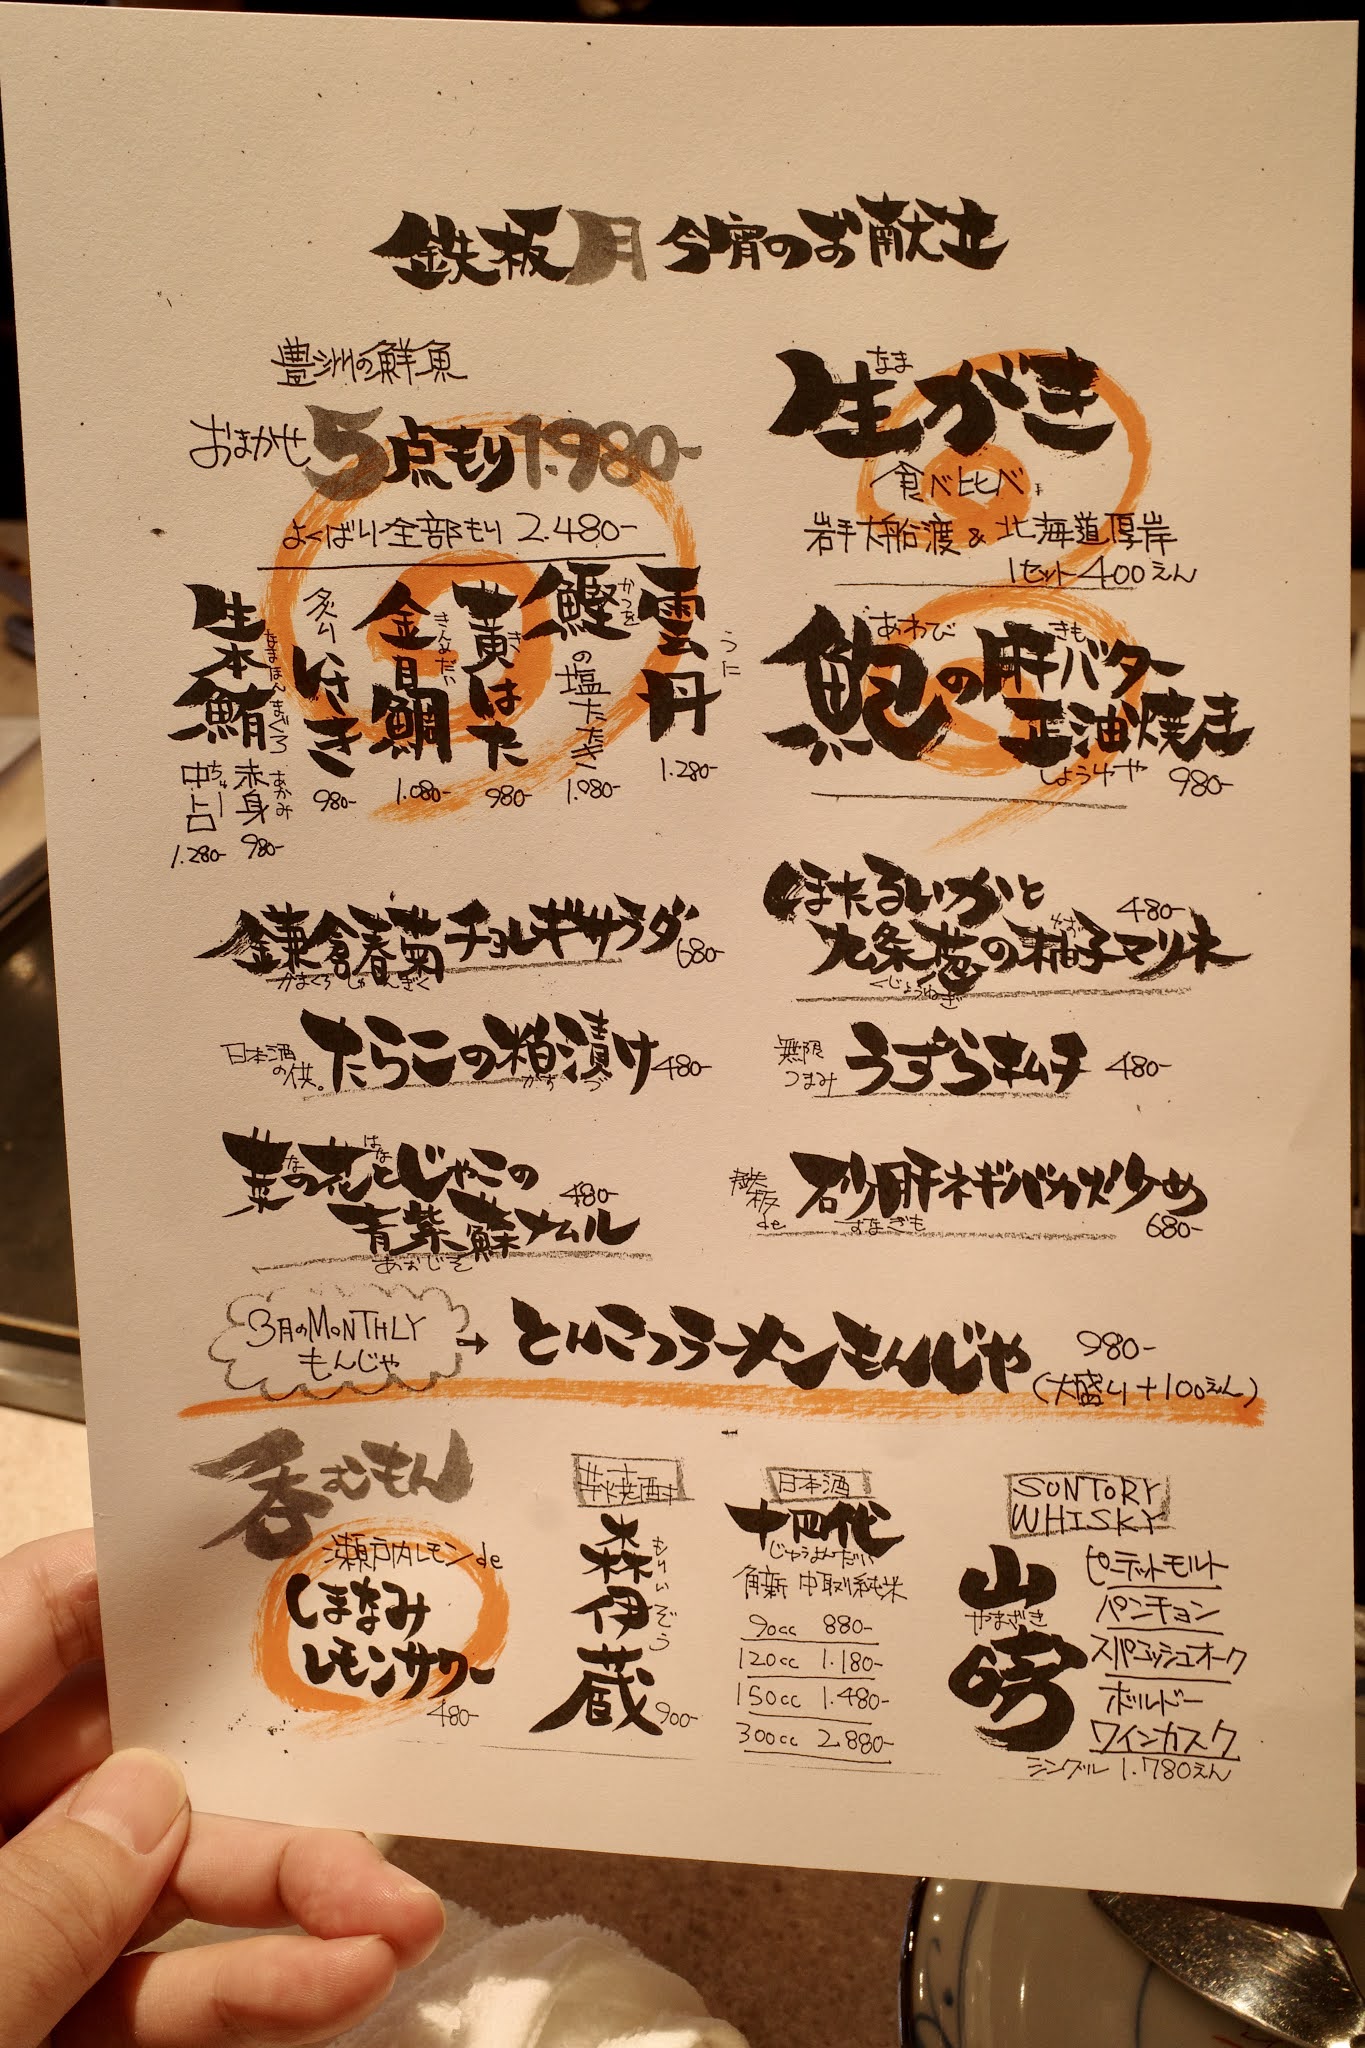 鉄板月 今宵のお献立
豊洲の鮮魚
おまかせ 5点もり 1.980-
よくばり全部もり 2.480-
生本鮪 なまほんまぐろ
中トロ ちゅー 1.280-
赤身 あかみ 980-
炙りいさき 980-
金目鯛 きんめだい 1.080-
黄はた き 980-
鰹の塩たたき かつを 1.080-
雲丹 うに 1.280-
生がき なま
食べ比べ
岩手大船渡 & 北海道厚岸
1セット400えん
鮑の肝バター あわび きも
正油焼き しょうゆ 980-
鎌倉春菊チョレギサラダ 680-
かまくらしゅんぎく
ほたるいかと 480-
九条葱の柚子マリネ
くじょうねぎ ゆず
日本酒の供。 たらこの粕漬け 480-
かす づ
無限つまみ うずらキムチ 480-
菜の花とじゃこの な はな
青紫蘇ナムル 480-
あおじそ
鉄板de 砂肝ネギバカ炒め
すなぎも 680-
3月のMONTHLY
もんじゃ
→ とんこつラーメンもんじゃ 980-
(大盛り+100えん)
呑むもん
瀬戸内レモンde
しまなみ
レモンサワー
480-
芋焼酎
森伊蔵 もりいぞう
900-
日本酒
十四代
じゅうよんだい
角新 中取り純米
90cc 880-
120cc 1.180-
150cc 1.480-
300cc 2.880-
SUNTORY
WHISKY
山崎 やまざき
ピーテッドモルト
パンチョン
スパニッシュオーク
ボルドー
ワインカスク
シングル 1.780えん